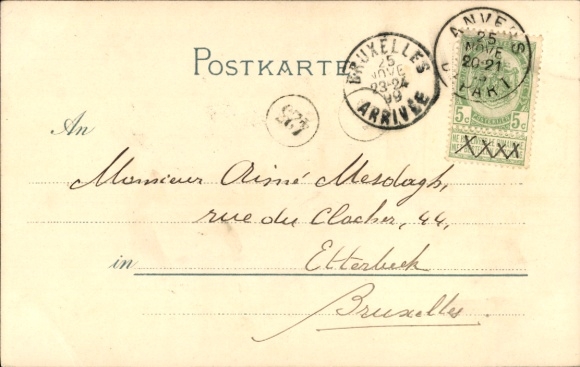 POSTKARTE
BRUXELLES
25
NOVE
23-24
99
ARRIVÉE
ANVERS
25
NOVE
20-21
DÉPART
5c 5c
XXXX
An
Monsieur Aimé Mesdagh,
rue du Clocher, 44,
in Etterbeek
Bruxelles.